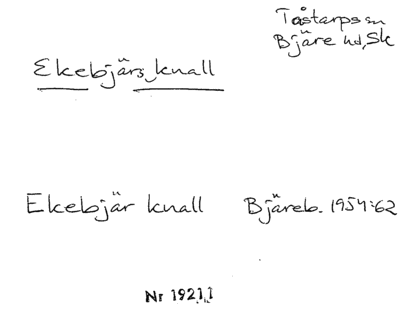 Tåstarps sn
Bjäre hd, Sk
Ekebjärs knall
Ekebjär knall Bjäreb. 1954:62
Nr 19211